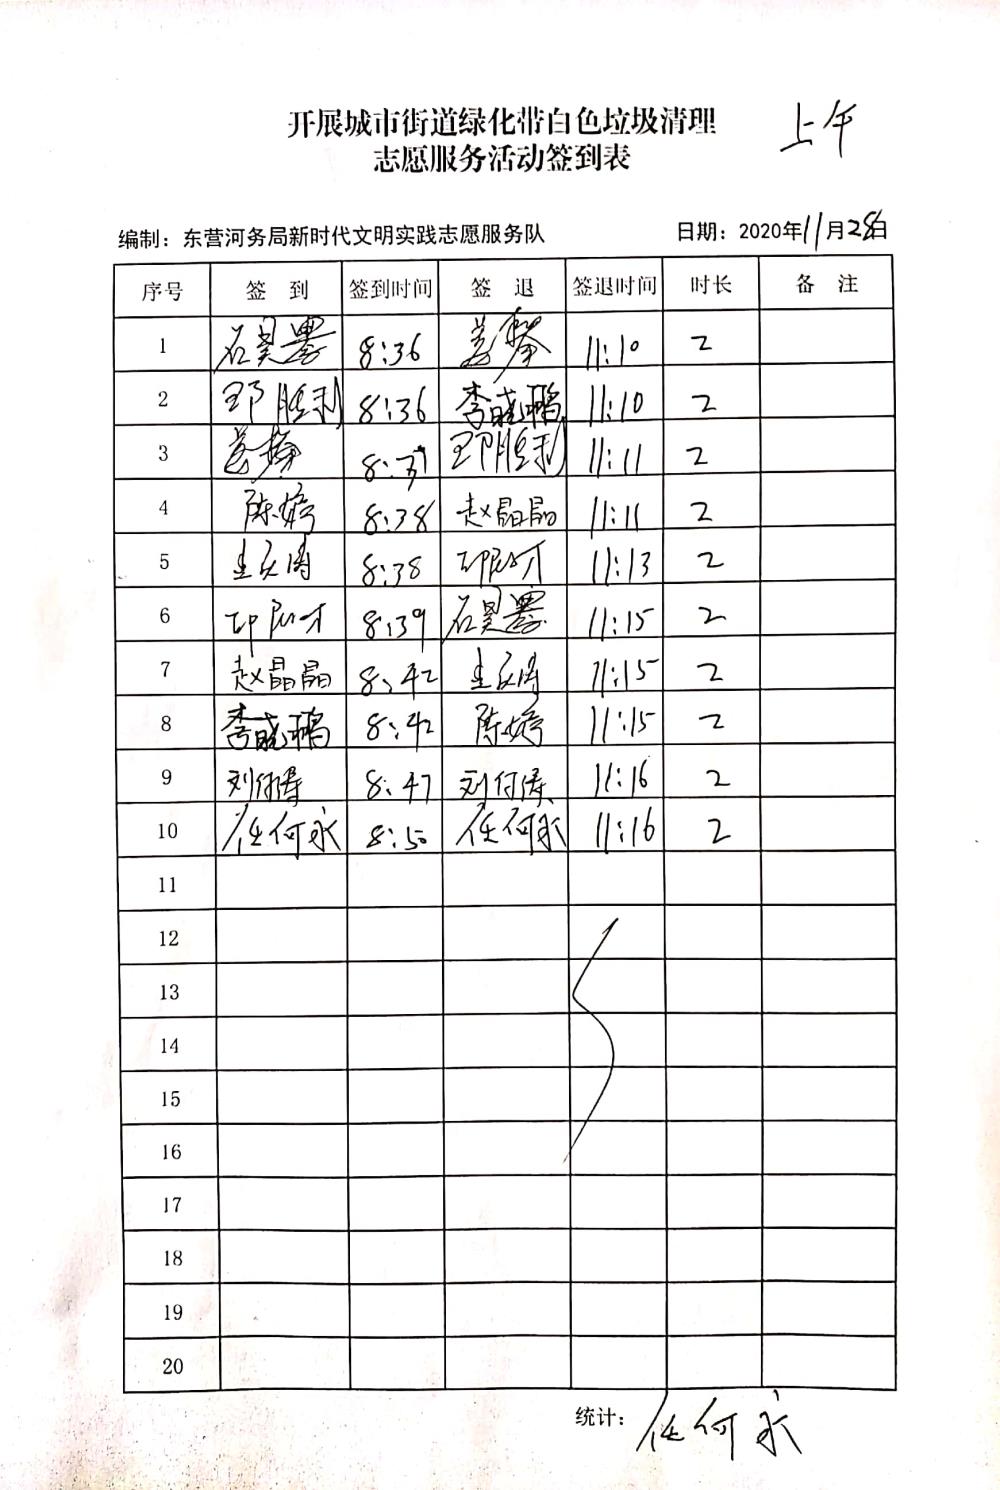 开展城市街道绿化带白色垃圾清理
志愿服务活动签到表
上午
编制：东营河务局新时代文明实践志愿服务队 日期：2020年11月28日
序号 签 到 签到时间 签 退 签退时间 时长 备 注
1 石昊墨 8:36 11:10 2
2 邵胜利 8:36 李晓鹏 11:10 2
3 8:37 邵胜利 11:11 2
4 陈婷 8:38 赵晶晶 11:11 2
5 8:38 11:13 2
6 8:39 石昊墨 11:15 2
7 赵晶晶 8:42 11:15 2
8 李晓鹏 8:42 陈婷 11:15 2
9 8:47 11:16 2
10 任何永 8:50 任何永 11:16 2
11
12
13
14
15
16
17
18
19
20
统计：任何永